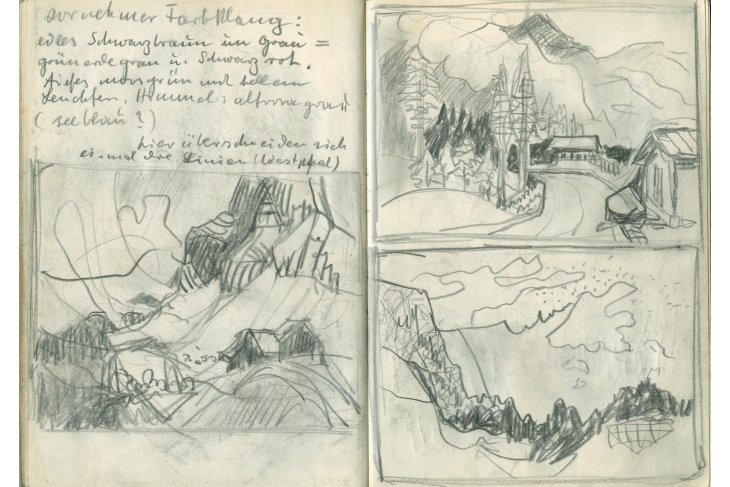 vornehmer Farbklang:
edles Schwarzbraun im Grau =
grünerdegrau u. Schwarz rot.
tiefes moosgrün mit hellem
Leuchten. Himmel: altrosa grau
(seeblau?)
hier überschneiden sich
einmal die Linien (Westphal)